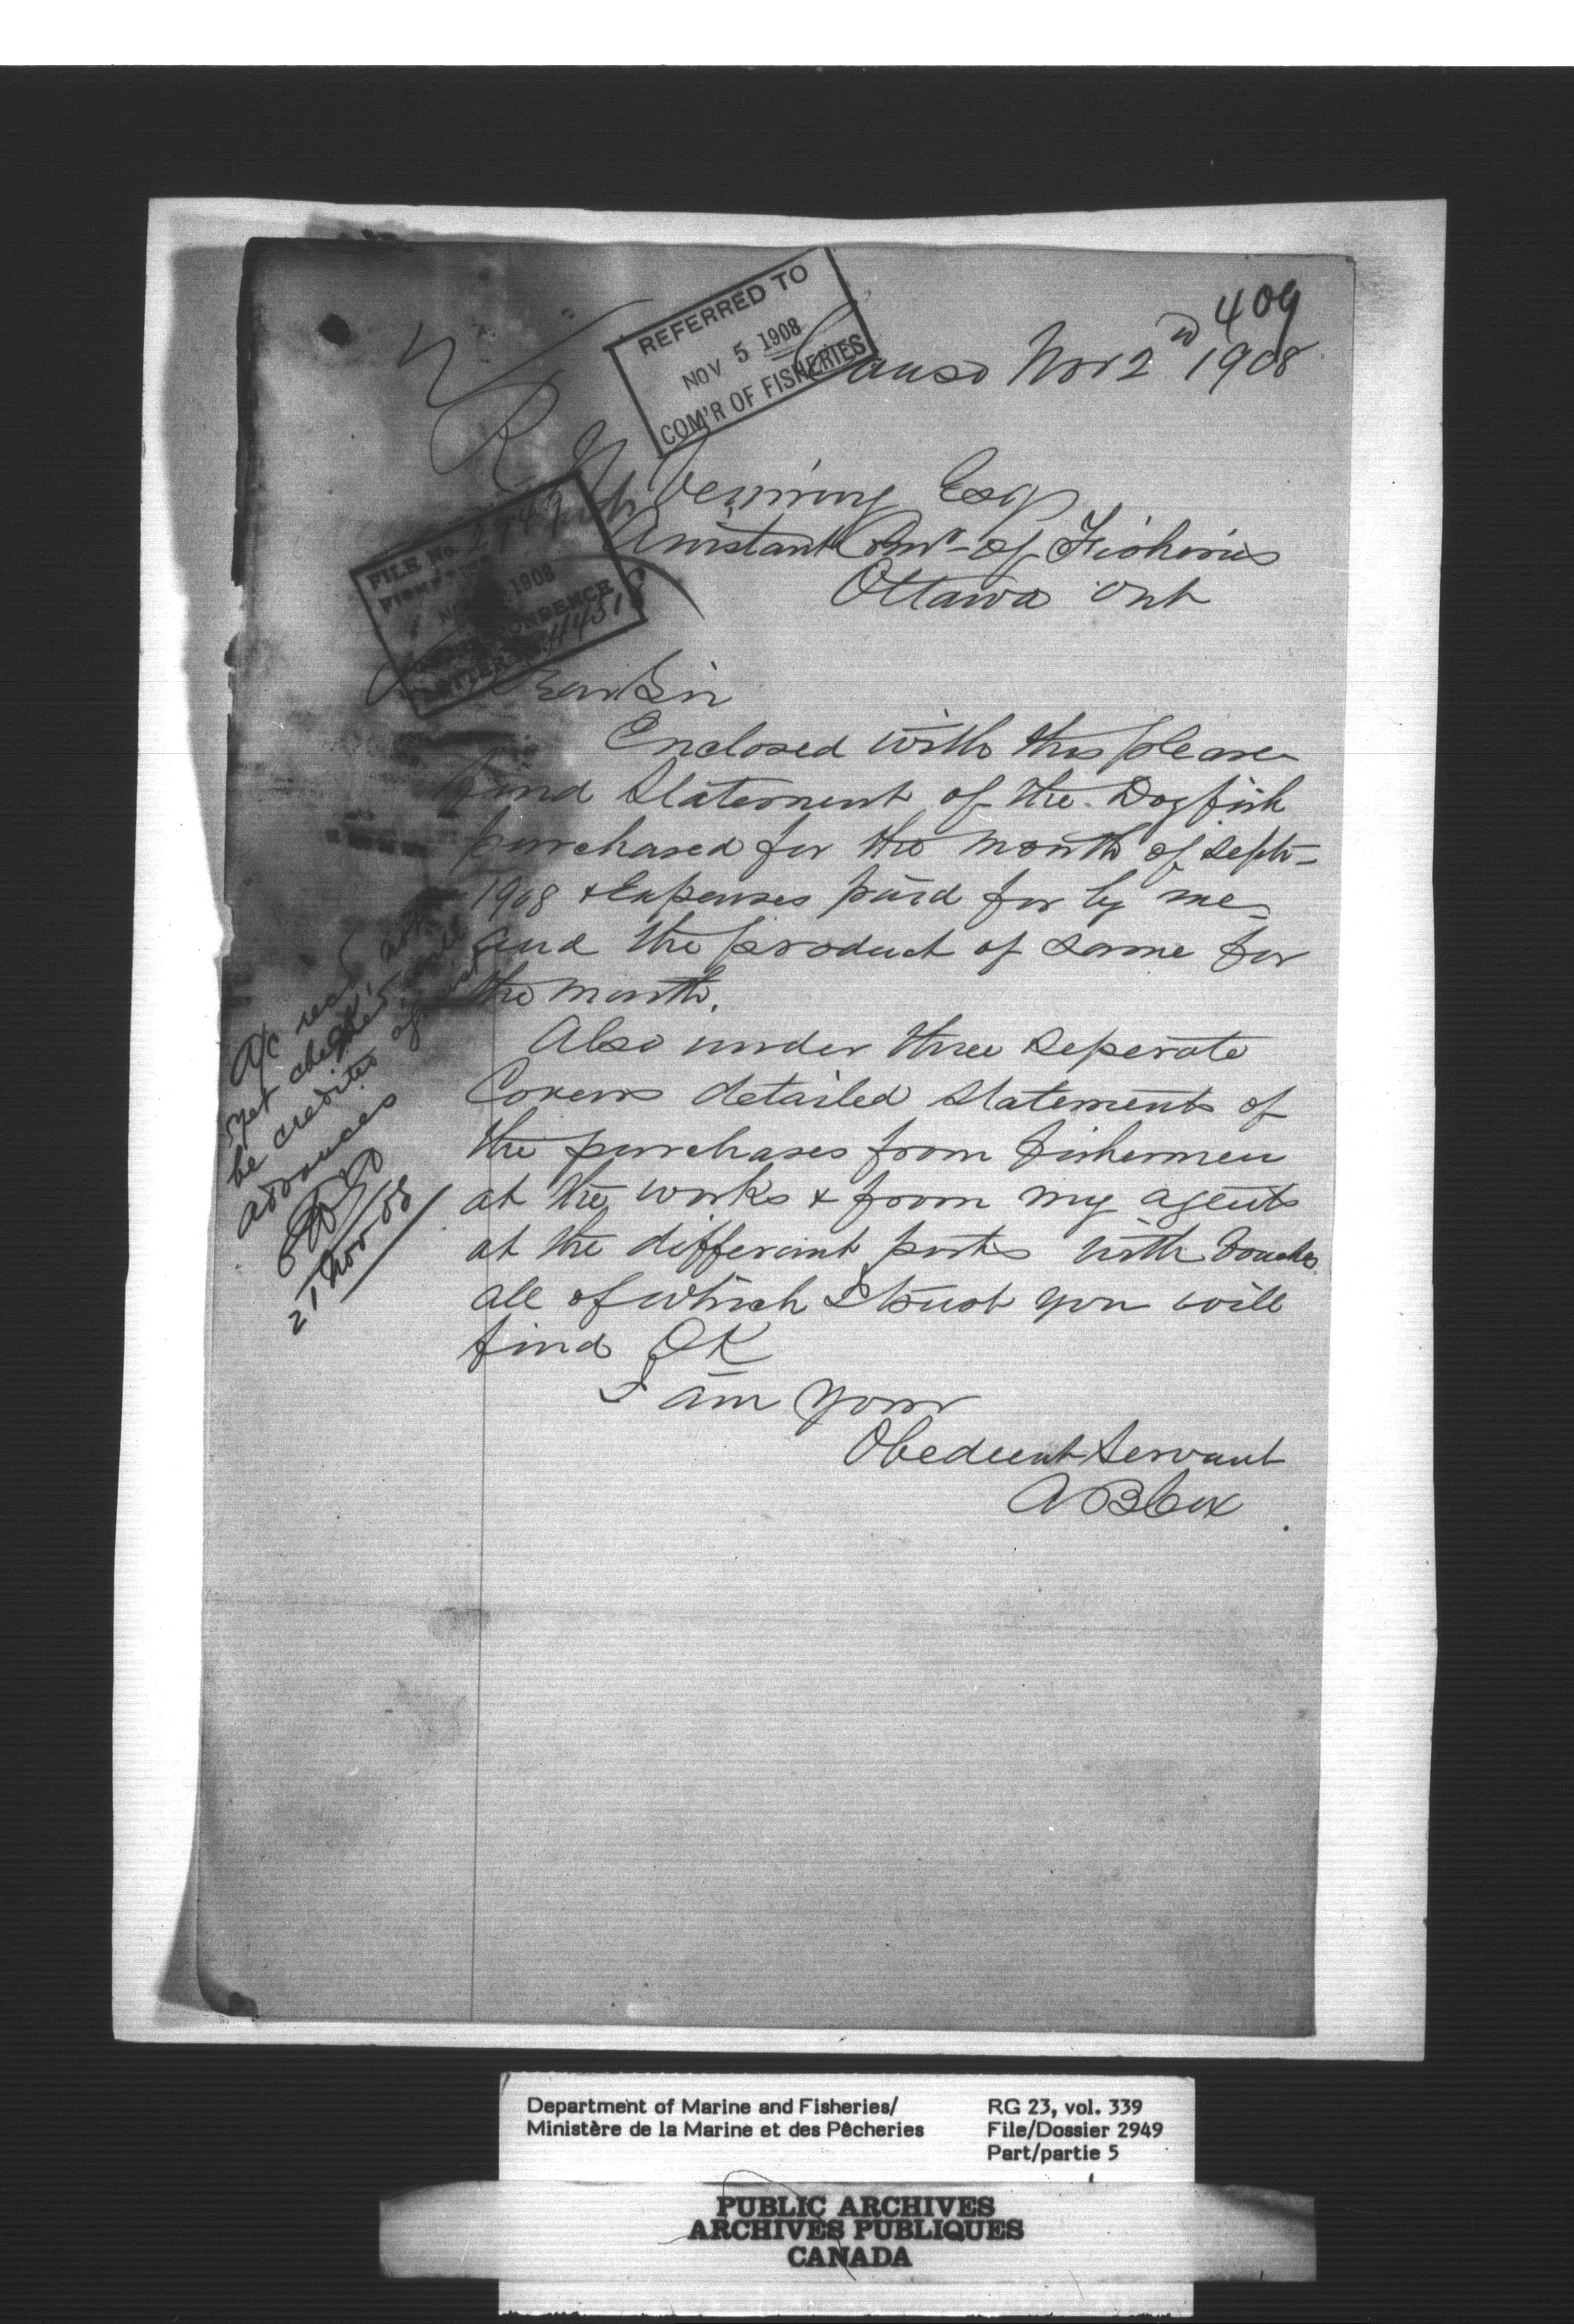 409
REFERRED TO
NOV 5 1908
COM'R OF FISHERIES
Canso Nov 2nd 1908
R N Venning Esq
Assistant Comr of Fisheries
Ottawa Ont
FILE No. 2949
FISHERIES
1908
CORRESPONDENCE
LETTER
Dear Sir
Enclosed with this please
find Statement of the Dogfish
purchased for the month of Sept-
1908 & Expenses paid for by me
and the product of same for
the month.
Also under three Seperate
Covers detailed Statements of
the purchases from fishermen
at the works & from my agents
at the different ports with
all of which I trust you will
find OK
I am your
Obedient Servant
A B Cox
A/c recd, not
yet checked, will
be credited against
advances
21 Nov 08
Department of Marine and Fisheries/
Ministère de la Marine et des Pêcheries
RG 23, vol. 339
File/Dossier 2949
Part/partie 5
PUBLIC ARCHIVES
ARCHIVES PUBLIQUES
CANADA